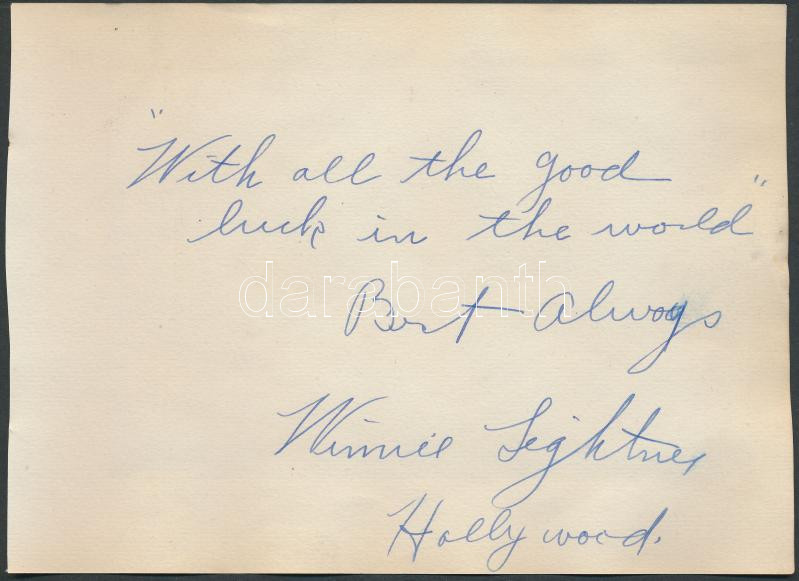 "With all the good
luck in the world"
darabanth
Best Always
Winnie Lightner
Hollywood.